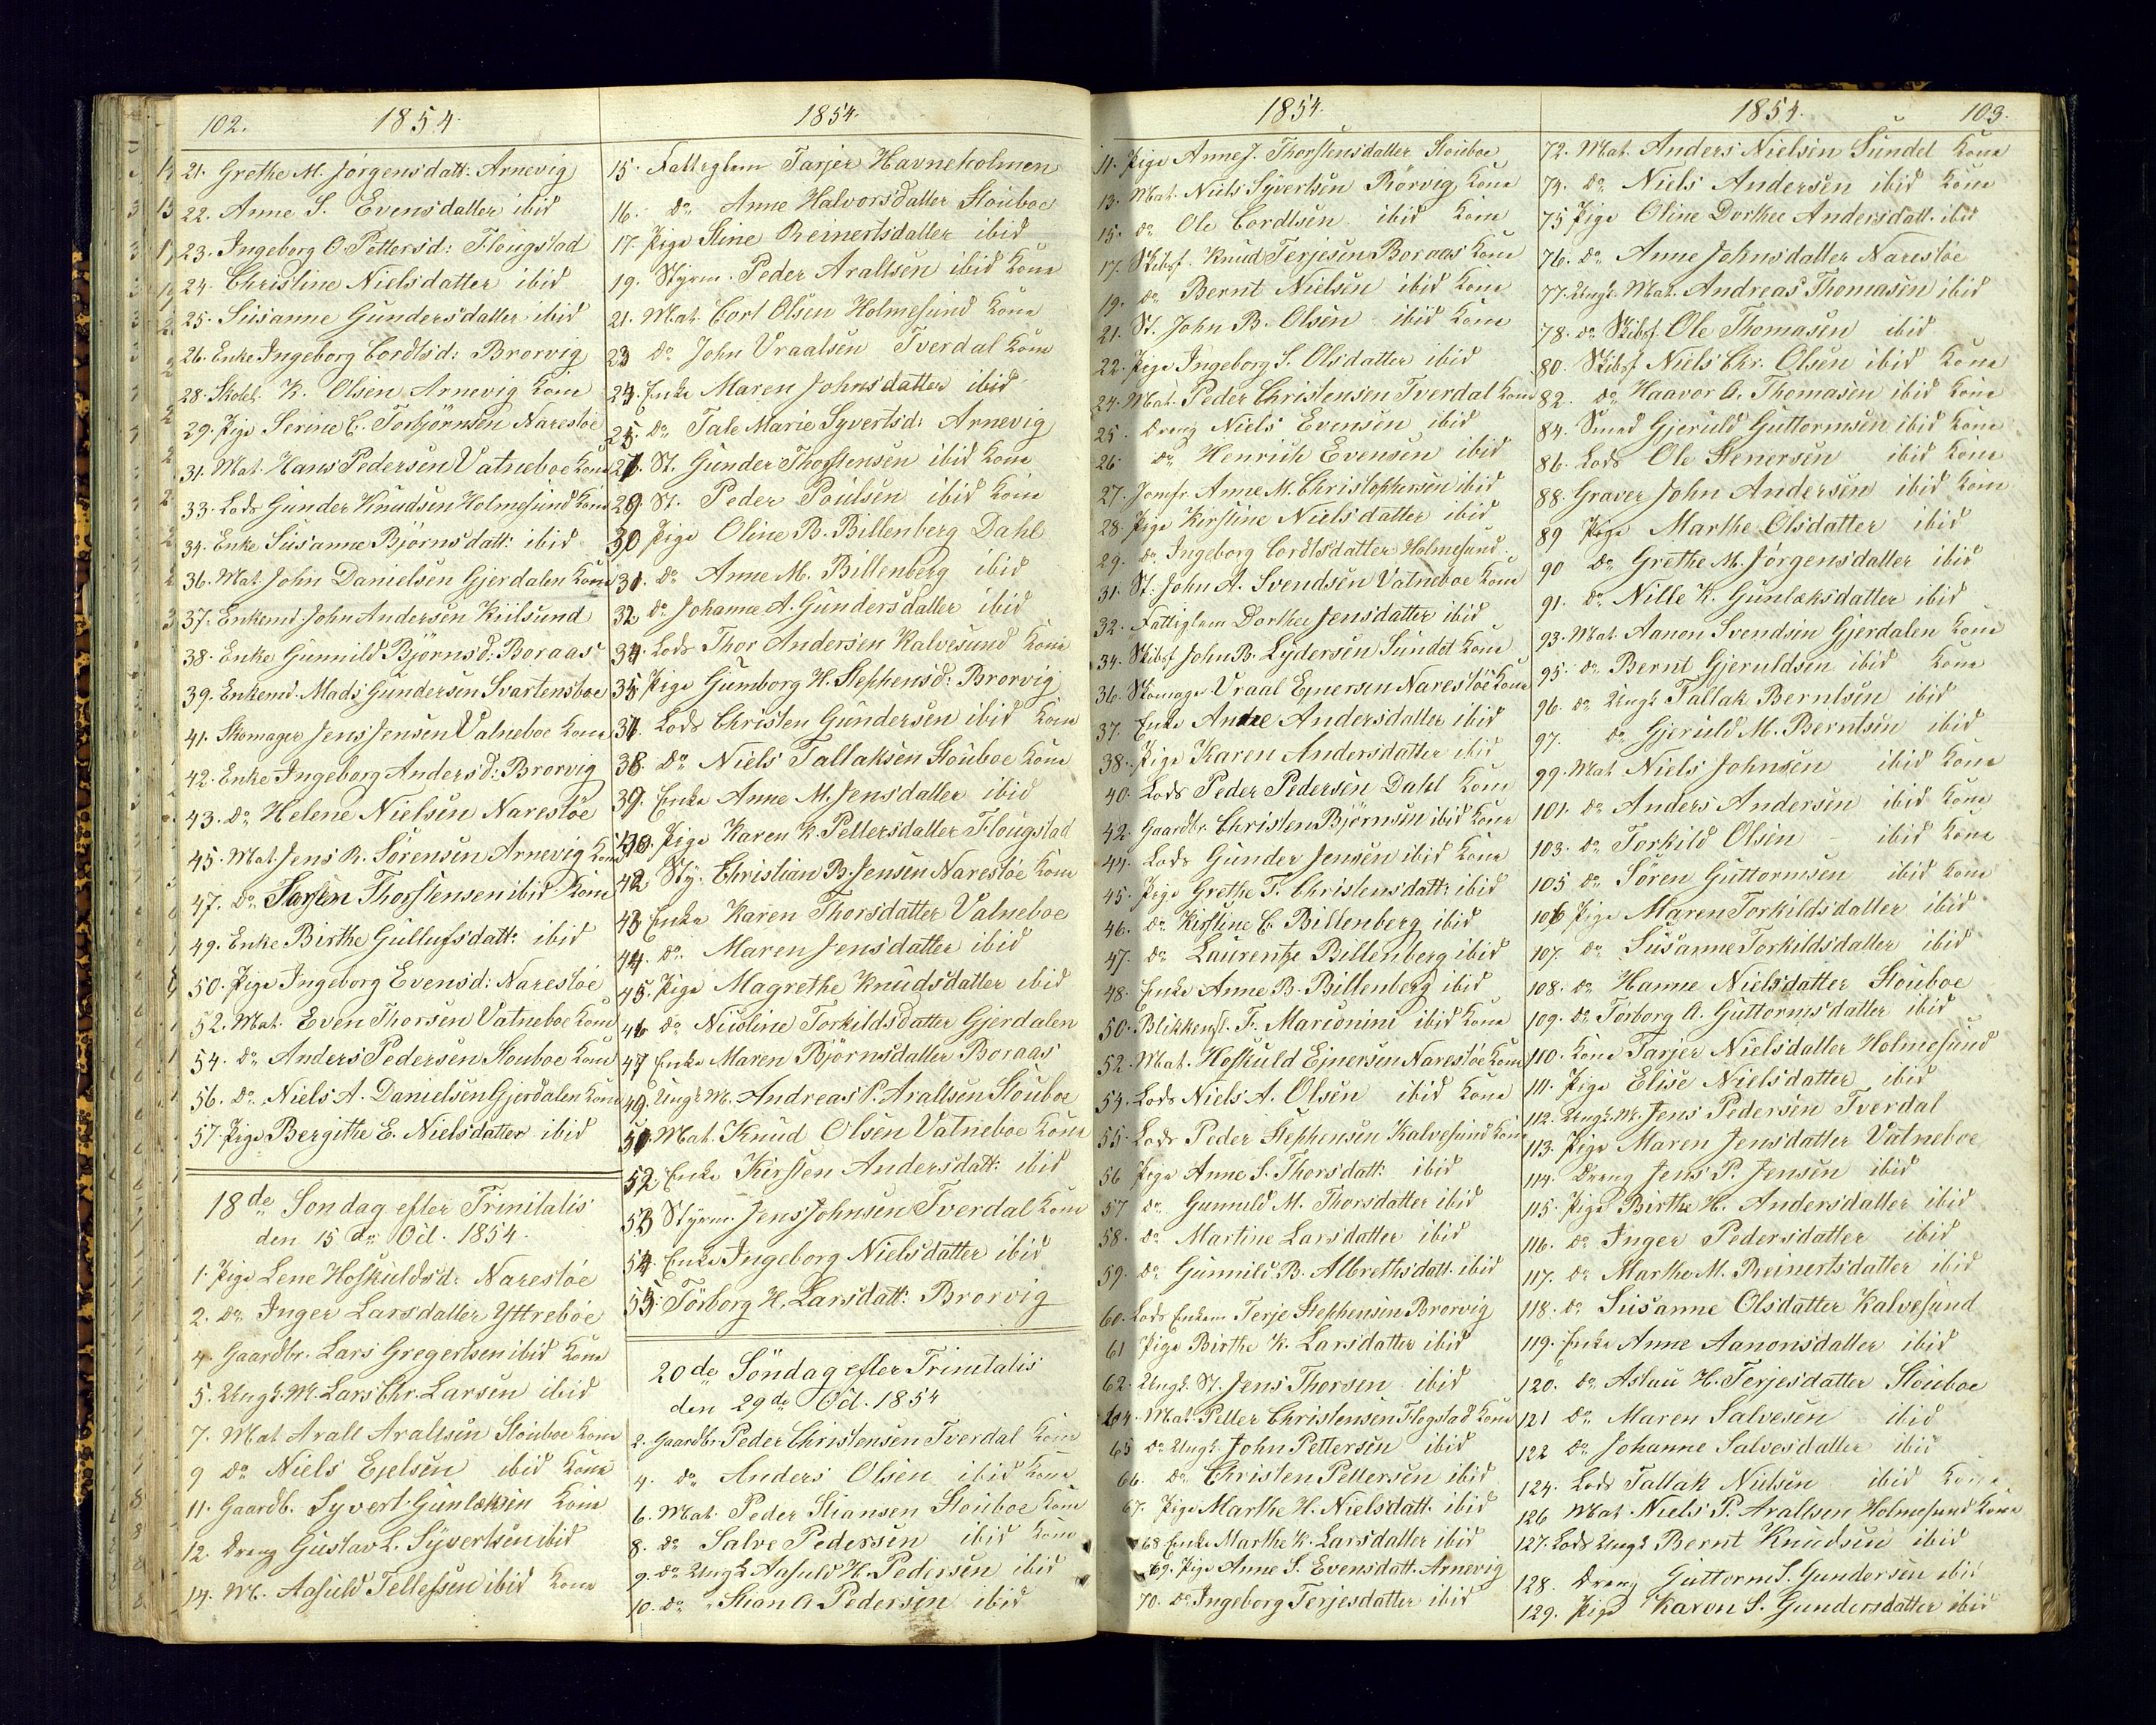 102. 1854
21. Grethe M. Jörgensdatt: Arnevig
22. Anne S. Evensdatter ibid
23. Ingeborg O. Pettersd: Flougstad
24. Christine Nielsdatter ibid
25. Susanne Gundersdatter ibid
26. Enke Ingeborg Cordtsd: Brorvig
28. Skolel. K. Olsen Arnevig Kone
29. Pige Serine C. Torbjörnsen Narestöe
31. Mat. Hans Pedersen Vatneboe Kone
33. Lods Gunder Knudsen Holmesund Kone
34. Enke Susanne Björnsdatt: ibid
36. Mat. John Danielsen Gjerdalen Kone
37. Enkemd John Andersen Kiilsund
38. Enke Gunnild Björnsd: Boraas
39. Enkemd. Mads Gundersen Svartensboe
41. Skomager Jens Jensen Vatneboe Kone
42. Enke Ingeborg Andersd: Brorvig
43. Do Helene Nielsen Narestöe
45. Mat. Jens R. Sörensen Arnevig Kone
47. Do Torsten Thorstensen ibid Kone
49. Enke Birthe Gullufsdatt: ibid
50. Pige Ingeborg Evensd: Narestöe
52. Mat. Even Thorsen Vatneboe Kone
54. Do Anders Pedersen Stouboe Kone
56. Do Niels A. Danielsen Gjerdalen Kone
57. Pige Bergithe E. Nielsdatter ibid
18de Söndag efter Trinitatis
den 15de Oct. 1854
1. Pige Lene Hofskuldsd: Narestöe
2. Do Inger Larsdatter Yttreböe
4. Gaardbr. Lars Gregertsen ibid Kone
5. Ungk. M. Lars Chr. Larsen ibid
7. Mat Arall Arallsen Stouboe Kone
9 Do Niels Ejelsen ibid Kone
11. Gaardb. Syvert Gunlaksen Kone
12. Dreng Gustav L. Syvertsen ibid
14. M. Aasuld Tellefsen ibid Kone
1854.
15. Fattiglem Tarjer Havneholmen
16. Do Anne Halvorsdatter Stouboe
17. Pige Stine Reinertsdatter ibid
19. Styrm. Peder Arallsen ibid Kone
21. Mat. Cort Olsen Holmesund Kone
23 Do John Vraalsen Tverdal Kone
24. Enke Maren Johnsdatter ibid
25. Do Tale Marie Syvertsd: Arnevig
27. St. Gunder Thorstensen ibid Kone
29. St. Peder Poulsen ibid Kone
30 Pige Oline B. Billenberg Dahl
31. Do Anne M. Billenberg ibid
32 Do Johanne A. Gundersdatter ibid
34 Lods Thor Andersen Kalvesund Kone
35 Pige Gumborg H. Stephensd: Brorvig
Lods Christen Gundersen ibid Kone
38. Do Niels Tallaksen Stouboe Kone
39. Enke Anne M. Jensdatter ibid
40. Pige Karen K. Pettersdatter Flougstad
42 Sty. Christian B. Jensen Narestöe Kone
43 Enke Karen Thorsdatter Vatneboe
44. do. Maren Jensdatter ibid
45. Pige Magrethe Knudsdatter ibid
46 Do Nicoline Torkildsdatter Gjerdalen
47 Enke Maren Björnsdatter Boraas
49. Ungk M. Andreas P. Arallsen Stouboe
51. Mat. Knud Olsen Vatneboe Kone
52. Enke Kirsten Andersdatt: ibid
53 Styrm. Jens Johnsen Tverdal Kone
54 Enke Ingeborg Nielsdatter ibid
55. Törborg H. Larsdatt: Brorvig
20de Söndag efter Trinitatis
den 29de Oct. 1854
2. Gaardbr Peder Christensen Tverdal Kone
4. do Anders Olsen ibid Kone
6. Mat. Peder Stiansen Stouboe Kone
8. Do Salve Pedersen ibid Kone
9. Do Ungk Aasuld H. Pedersen ibid
10. Do Stian A Pedersen ibid
1854.
11. Pige Anne J. Thorstensdatter Stouboe
13. Mat. Niels Syvertsen Rörvig Kone
15. do Ole Cordtsen ibid Kone
17. Skibsf. Knud Terjesen Boraas Kone
19. Do Bernt Nielsen ibid Kone
21. St. John B. Olsen ibid Kone
22. Pige Ingeborg S. Olsdatter ibid
24. Mat. Peder Christensen Tverdal Kone
25. Dreng Niels Evensen ibid
26 do Henrich Evensen ibid
27. Jomfr. Anne M. Christophersen ibid
28. Pige Kirstine Nielsdatter ibid
29. Do Ingeborg Cordtsdatter Holmesund
31. St. John A. Svendsen Vatneboe Kone
32. Fattiglem Dorthe Jensdatter ibid
34. Skibsf John B. Lydersen Sundet Kone
36. Skomager Vraal Ejnersen Narestöe Kone
37. Enke Anne Andersdatter ibid
38. Pige Karen Andersdatter ibid
40. Lods Peder Pedersen Dahl Kone
42. Gaardbr. Christen Björnsen ibid Kone
44. Lods Gunder Jensen ibid Kone
45. Pige Grethe T. Christensdatt: ibid
46. do Kirstine C. Billenberg ibid
47. do Laurentze Billenberg ibid
48. Enke Anne B. Billenberg ibid
50. Blikkensl. F. Marconini ibid Kone
52. Mat. Hofskuld Ejnersen Narestöe Kone
54. Lods Niels A. Olsen ibid Kone
55. Lods Peder Stephensen Kalvesund Kone
56 Pige Anne S. Thorsdatt: ibid
57 do Gunnild M. Thorsdatter ibid
58. do Martine Larsdatter ibid
59. do Gunnild B. Albrethsdatt. ibid
60. Lods Enkem Terje Stephensen Brorvig
61 Pige Birthe K. Larsdatter ibid
62. Ungk. St. Jens Thorsen ibid
64. Mat. Petter Christensen Flegstad Kone
65 Do Ungk. John Pettersen ibid
66. do Christen Pettersen ibid
67. Pige Marthe H. Nielsdatt. ibid
68 Enke Marthe K. Larsdatter ibid
69. Pige Anne S. Evensdatt. Arnevig
70. Do Ingeborg Terjesdatter ibid
1854. 103.
72. Mat. Anders Nielsen Sundet Kone
74. do Niels Andersen ibid Kone
75 Pige Oline Dorthee Andersdatt. ibid
76. Do Anne Johnsdatter Narestöe
77. Ungk. Mat. Andreas Thomasen ibid
78. do Skibsf. Ole Thomasen ibid
80. Skibsf Niels Chr. Olsen ibid Kone
82. Do Haavor A. Thomasen ibid Kone
84. Smed Gjeruld Guttormsen ibid Kone
86. Lods Ole Stenersen ibid Kone
88. Graver John Andersen ibid Kone
89 Pige Marthe Olsdatter ibid
90 Do Grethe M. Jörgensdatter ibid
91. Do Nille K. Gunlaksdatter ibid
93. Mat. Aanon Svendsen Gjerdalen Kone
95. do Bernt Gjeruldsen ibid Kone
96. do Ungk Tallak Berntsen ibid
97. do Gjeruld M. Berntsen ibid
99. Mat Niels Johnsen ibid Kone
101. do Anders Andersen ibid Kone
103. do Torkild Olsen ibid Kone
105 do Sören Guttormsen ibid Kone
106 Pige Maren Torkildsdatter ibid
107. do Susanne Torkildsdatter ibid
108. do Hanne Nielsdatter Stouboe
109. do Torborg A. Guttormsdatter ibid
110. Kone Tarjer Nielsdatter Holmesund
111. Pige Elise Nielsdatter ibid
112. Ungk. M. Jens Pedersen Tverdal
113. Pige Maren Jensdatter Vatneboe
114. Dreng Jens P. Jensen ibid
115. Pige Birthe H. Andersdatter ibid
116. do Inger Pedersdatter ibid
117. do Marthe M. Reinertsdatter ibid
118. do Susanne Olsdatter Kalvesund
119. Enke Anne Aanonsdatter ibid
120. do Aslau H. Terjesdatter Stouboe
121 do Maren Salvesen ibid
122 do Johanne Salvesdatter ibid
124. Lods Tallak Nielsen ibid Kone
126 Mat. Niels P. Arallsen Holmesund Kone
127. Lods Ungk Bernt Knudsen ibid
128. Dreng Guttorm S. Gundersen ibid
129. Pige Karen S. Gundersdatter ibid